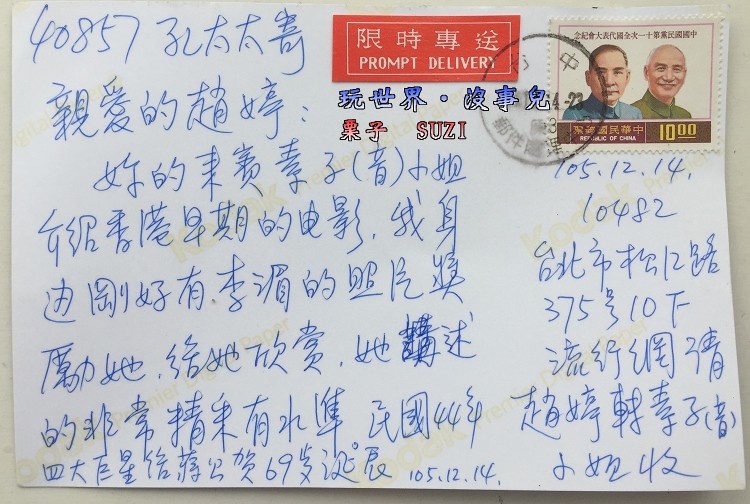 40857 孔太太寄
限時專送
PROMPT DELIVERY
中國國民黨第十一次全國代表大會紀念
中華民國郵票
REPUBLIC OF CHINA
10.00
玩世界·沒事兒
栗子 SUZI
親愛的趙婷:
妳的來賓素子(音)小姐
介紹香港早期的电影,我身
边剛好有李湄的照片獎
勵她,給她欣赏,她講述
的非常精采有水準 民國44年
四大巨星給蔣公賀69岁诞辰 105.12.14.
105.12.14.
10482
台北市松江路
375号10F
流行網 請
趙婷轉素子(音)
小姐收
Kodak
Premier Digital Paper